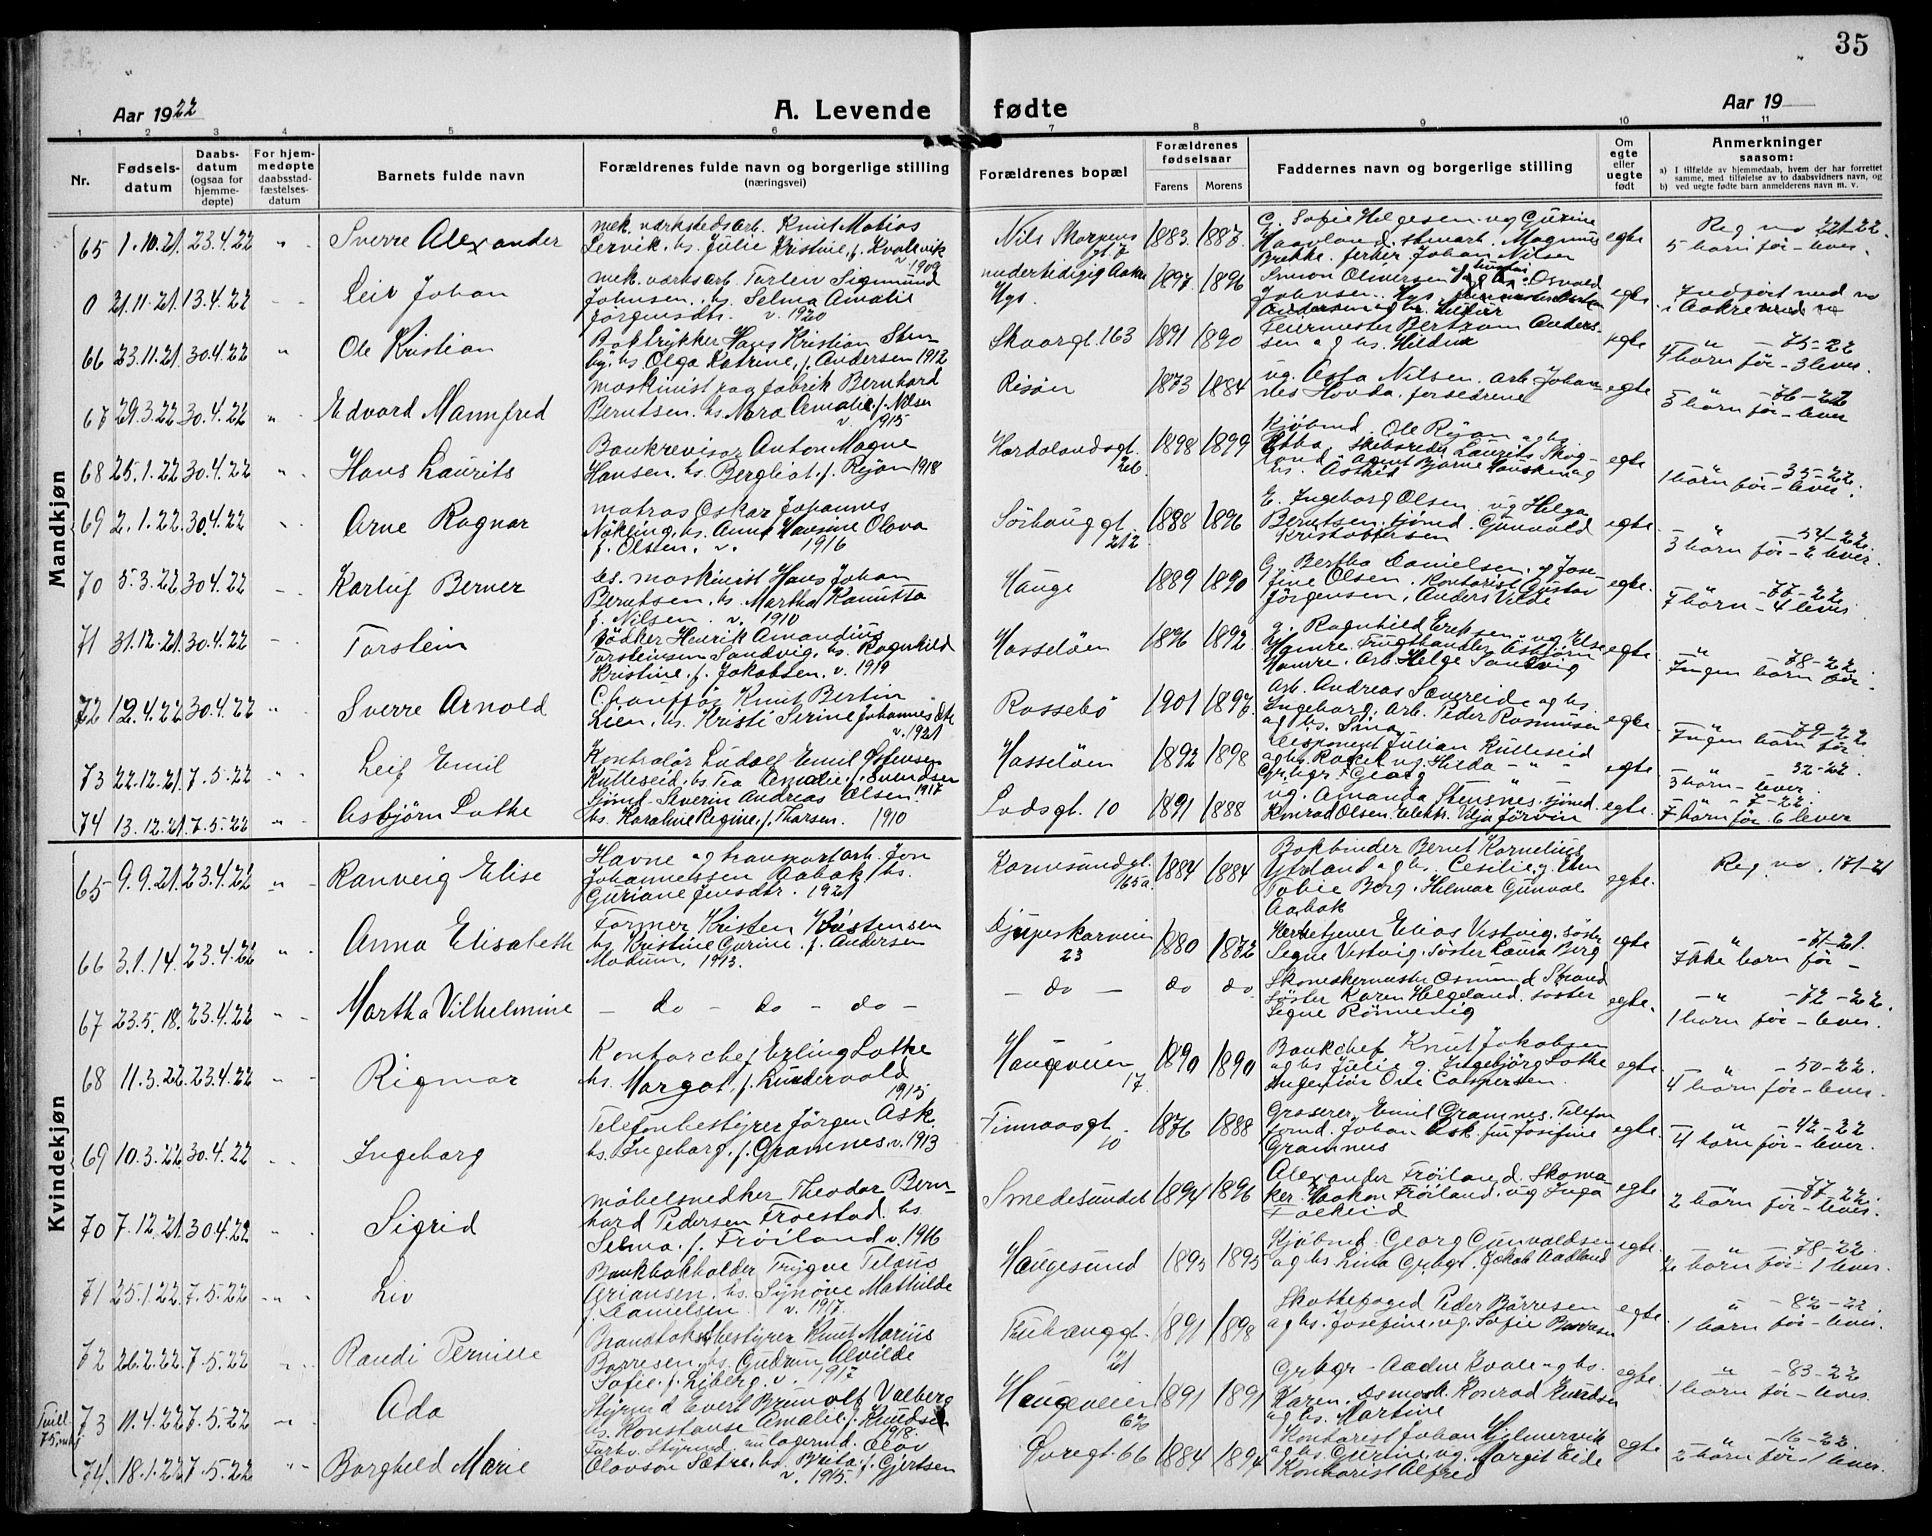 35
Aar 1922
A. Levende fødte
Aar 19
1 2 3 4 5 6 7 8 9 10 11
Nr.
Fødselsdatum
Daabsdatum (ogsaa for hjemmedøpte)
For hjemmedøpte daabsstadfæstelsesdatum
Barnets fulde navn
Forældrenes fulde navn og borgerlige stilling (næringsvei)
Forældrenes bopæl
Forældrenes fødselsaar
Farens Morens
Faddernes navn og borgerlige stilling
Om egte eller uegte født
Anmerkninger saasom:
a) I tilfælde av hjemmedaab, hvem der har forrettet samme, med tilføielse av to daabsvidners navn, og
b) ved uegte fødte barn anmelderens navn m. v.
Mandkjøn
65 1.10.21. 23.4.22 Sverre Alexander
mek. værkstedsarb. Knut Matias
Lervik. hs. Julie Kristine, f. Kvalsvik
v. 1909
Nils Skorpens gt. 7 1883. 1887.
G. Sofie Helgesen. ug Gurine
Haavland. stuearb. Magnus
Brekke. fisker Johan Nilsen
egte Reg no 221-22.
5 børn før - lever.
0 21.11.21. 13.4.22 Leiv Johan
mek. værksarb. Torlev Sigmund
Johnsen. hs. Selma Amalie
Jørgensdtr. v. 1920
1897. 1896
Simon Oliversen
egte Indført med no
i Aakre
66 23.11.21. 30.4.22 Ole Kristian
Boktrykker Hans Kristian Stenby, hs Olga Katrine, f. Andersen 1912
Skaaregt. 163 1891 1890
Feiermester Bertram Andersen og hs. Hilda
egte - 75-22
4 børn før - 3 lever.
67 29.3.22 30.4.22 Edvard Mannfred
maskinist Bernhard
Berntsen. hs Nora Amalie f. Nilsen
v. 1915
Risøen 1873 1884
ug. Asta Nilsen. arb. Johannes Hovda, forældrene
egte - 76-22
5 børn før - lever
68 25.1.22 30.4.22 Hans Laurits
Bankrevisor Anton Magne
Hansen. hs. Bergliot, f. Røjan 1918
Hordalandsgt. 1898 1899
Kjøbmd. Ole Røjan og hs.
Ebba, skibsreder Laurits Skogland, agent Bjarne Hansken og
hs. Astrid
egte - 35-22
1 børn før - lever.
69 2.1.22 30.4.22 Arne Ragnar
matros Oskar Johannes
Nökling, hs. Anna Hansine Olava
f. Olsen. v. 1916
Sørhauggt. 212 1888 1896
E. Ingeborg Olsen. ug Helga
Berntsen. sjømd. Gunvald
Kristoffersen
egte. - 54-22.
3 børn før - 2 lever.
70 5.3.22 30.4.22 Karluf Berner
hs. maskinist Hans Johan
Berntsen. hs. Martha Kanutta
f. Nilsen. v. 1910
Hauge 1889 1890
G. Bertha Danielsen. g. Josefine Olsen. Kontorist Gustav
Jørgensen, Anders Vilde
egte. - 77-22
7 børn - 4 lever.
71 31.12.21. 30.4.22 Torstein
Bødker Henrik Amandius
Torsteinsen Sandvig. hs. Ragnhild
Kristine, f. Jakobsen. v. 1919
Hasseløen 1896 1892.
g. Ragnhild Eriksen. ug Else
Hamre. Frugthandler Asbjørn
Hamre. Arb. Helge Sandvig
egte. - 78-22
Ingen børn før.
72 12.4.22. 30.4.22 Sverre Arnold
Chauffør Knut Bertin
Lien. hs. Kristi Serine Johannesdtr
v. 1921
Rossebø 1901 1897.
Arb. Andreas Sævereide og hs.
Ingeborg. Arb. Peder Rasmussen
og hs. Sina
egte - 79-22
Ingen børn før
73 22.12.21. 7.5.22 Leif Emil
Kontrolør Ludolf Emil Osmundsen
Kulleseid. hs. Tea Amalie f. Svendsen
1917
Hasseløen 1892 1898
Disponent Julian Kulleseid
og hs. Rakel ug. Hilda - " -
Grbgr. Georg - " -
egte - 32-22.
3 børn - lever
74 13.12.21. 7.5.22 Asbjørn Lothe
Sjømd. Severin Andreas Olsen.
hs. Karoline Regine, f. Thorsen. 1910
Lodsgt. 10 1891 1888
ug. Amanda Stensnes, sjømd.
Konrad Olsen.
egte. - 7-22
7 børn før. 6 lever
Kvindekjøn
65 9.9.21. 23.4.22 Ranveig Elise
Havne og transportarb. Jon
Johannessen Aabak, hs.
Guriane Jensdtr. 1921
Karmsundgt. 165a. 1884 1884
Bokbinder Bernt Kornelius
Ytreland og hs. Cecilie, g. Elen
Tobie Berg. Hilmar Gunvol
Aabak
egte. Reg no. 171-21
66 3.1.14. 23.4.22 Anna Elisabeth
Former Kristen Kristensen
hs. Kristine Gurine. f. Andersen
Modum. 1913.
Djupeskarveien 23 1880 1872
Hertetjener Elias Vestvig, søster
Signe Vestvig. Søster Laura Berg
egte - 71-21.
Ikke børn før -
67 23.5.18. 23.4.22 Martha Vilhelmine
- do - do - do -
- do - do do.
Skomakermester Osmund Strand
søster Karen Helgeland. søster
Signe Rønnevig
egte. - " - 72-22.
1 børn før - lever.
68 11.3.22. 23.4.22 Rigmor
Kontorchef Erling Lothe
hs. Margot, f. Lundervold
1915
Haugeveien 17. 1890 1890
Bankchef Knut Jakobsen
og hs Julie g. Ingebjørg Lothe
Ingeniør Ove Caspersen.
egte. - 50-22.
4 børn før - lever.
69 10.3.22 30.4.22 Ingeborg
Telefonbestyrer Jørgen Ask.
hs. Ingeborg, f. Gramnes v. 1913
Finnaasgt. 10 1876 1888
Grosserer Emil Gramnes. Telefonfrmd. Johan Ask. frk Josefine
Gramnes
egte. - 42-22
4 børn før - lever.
70 7.12.21. 30.4.22 Sigrid
møbelsnedker Theodor Bernhard Pedersen Froestad. hs.
Selma. f. Frøiland v. 1916
Smedesundet 1894 1896
Alexander Frøiland. Skomaker. Haakon Frøiland. ug Inga
Falkeid
egte - 77-22.
2 børn før - lever.
71 25.1.22. 7.5.22 Liv
Bankbokholder Trygve Teløus
Ariansen. hs. Synøve Mathilde
f. Danielsen v. 1917.
Haugesund 1893 1895
Kjøbmd. Georg Gunvaldsen
og hs Lina Grbgr. Jakob Aadland
egte. - 78-22.
2 børn før. 1 lever.
72 26.2.22. 7.5.22 Randi Pernille
Brandtakstbestyrer Knut Marius
Børresen hs. Gudrun Alvilde
Sofie. f. Liberg. v. 1917
Tuhauggt. 21 1891 1898
Skattefoged Peder Børresen
og hs. Josefine. ug. Sofie Børresen
egte. - 82-22.
1 børn før - lever.
Tvill 75 mkj 73 11.4.22 7.5.22 Ada
Styrmd Evert Brunolf Valberg
hs. Konstanse Amalie f. Knudsen
1918.
Haugeveien 1891 1891
Grbgr - Aadne Kvale og hs.
Karen. Konrad Knudsen
og hs. Martine
egte. - 83-22
1 børn før - lever.
74. 18.1.22 7.5.22 Borghild Marie
Forhv. Styrmd. nu lagermd. Olav
Olavson Sætre, hs. Brita. f. Gjertsen
v. 1915.
Øvregt. 66 1884 1894
Kontorist Johan Hjelmervik
og hs Gurine. ug. Margit Eide
Kontorist Alfred
egte - 16-22.
2 børn før - 1 lever.